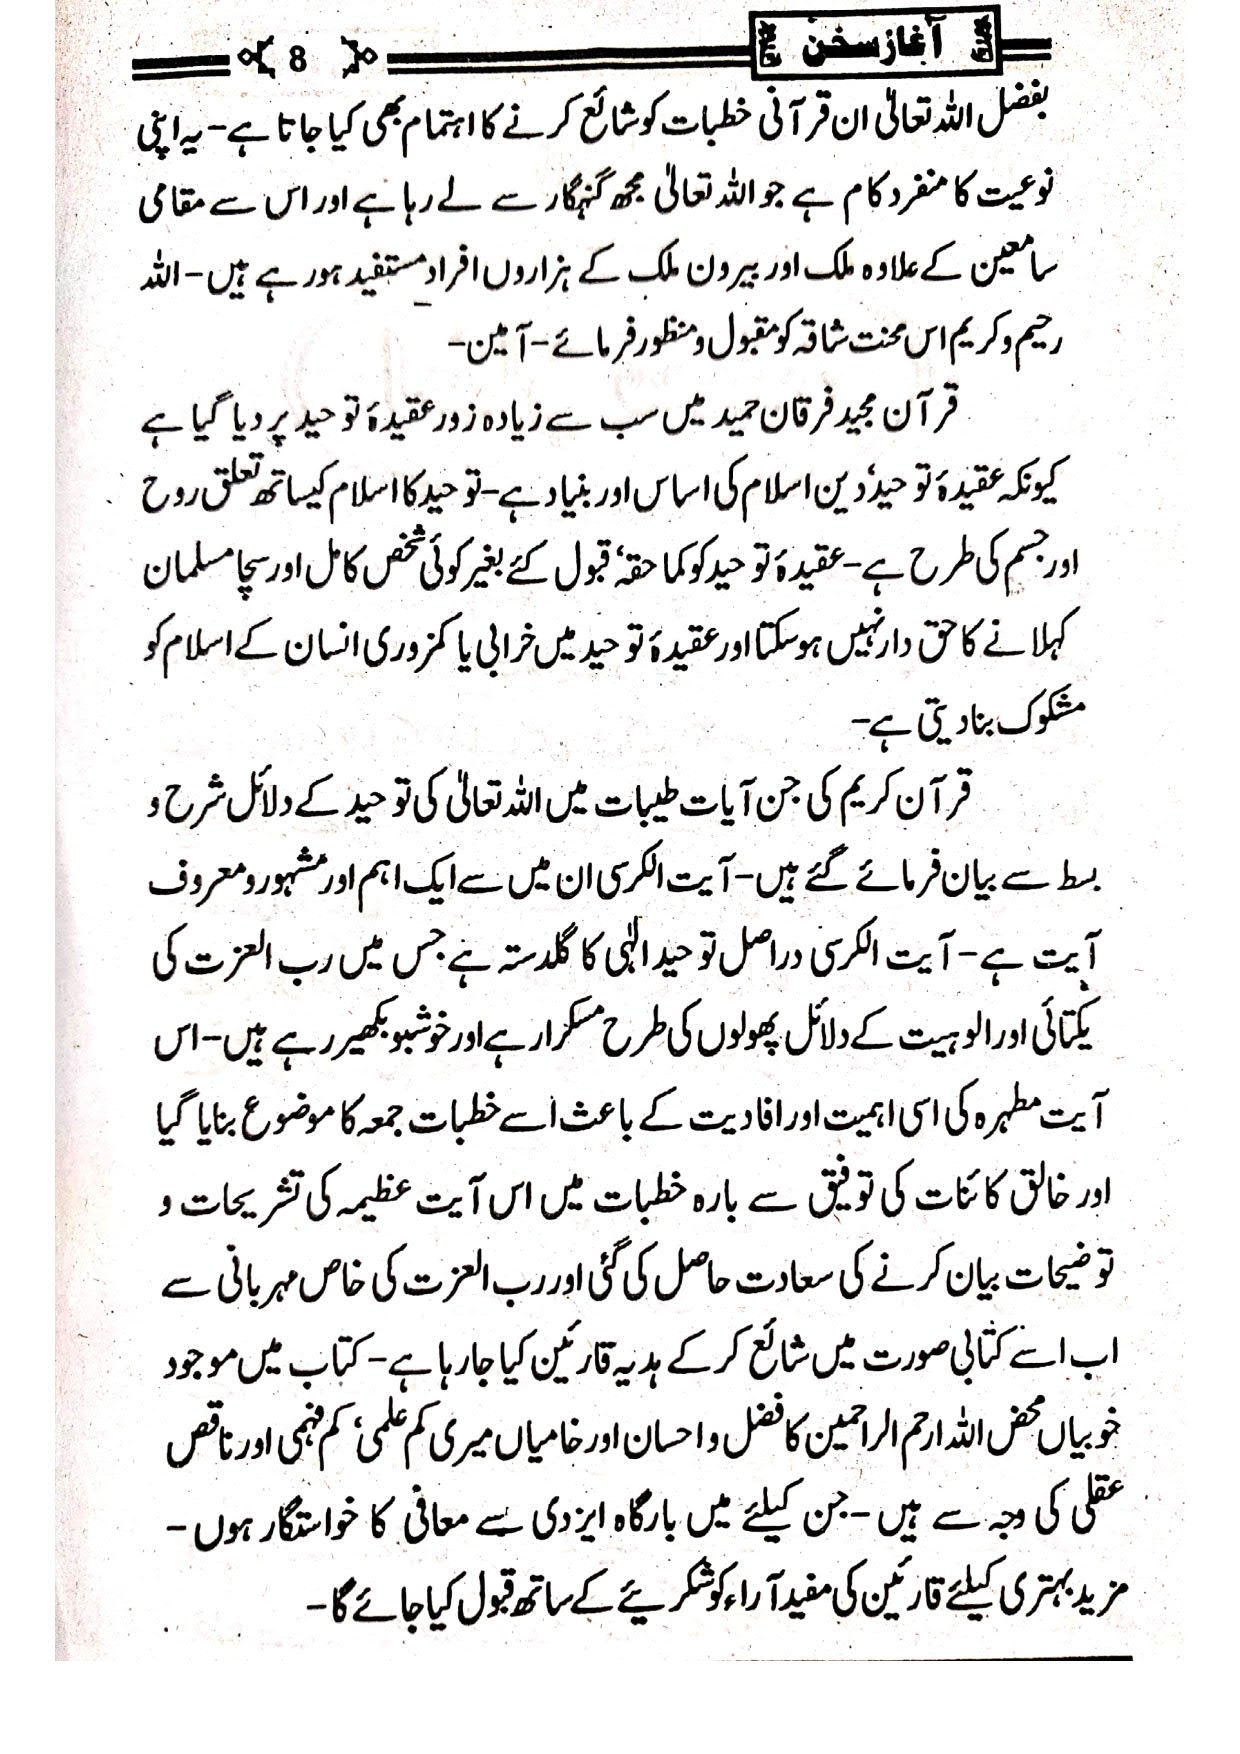 آغاز سخن
8
بفضل اللہ تعالیٰ ان قرآنی خطبات کو شائع کرنے کا اہتمام بھی کیا جاتا ہے- یہ اپنی
نوعیت کا منفرد کام ہے جو اللہ تعالیٰ مجھ گنہگار سے لے رہا ہے اور اس سے مقامی
سامعین کے علاوہ ملک اور بیرون ملک کے ہزاروں افراد مستفید ہو رہے ہیں- اللہ
رحیم و کریم اس محنت شاقہ کو مقبول و منظور فرمائے- آمین-
قرآن مجید فرقان حمید میں سب سے زیادہ زور عقیدۂ توحید پر دیا گیا ہے
کیونکہ عقیدۂ توحید‘ دین اسلام کی اساس اور بنیاد ہے- توحید کا اسلام کیساتھ تعلق روح
اور جسم کی طرح ہے- عقیدۂ توحید کو کما حقہ‘ قبول کئے بغیر کوئی شخص کامل اور سچا مسلمان
کہلانے کا حق دار نہیں ہوسکتا اور عقیدۂ توحید میں خرابی یا کمزوری انسان کے اسلام کو
مشکوک بنا دیتی ہے-
قرآن کریم کی جن آیات طیبات میں اللہ تعالیٰ کی توحید کے دلائل شرح و
بسط سے بیان فرمائے گئے ہیں- آیت الکرسی ان میں سے ایک اہم اور مشہور و معروف
آیت ہے- آیت الکرسی دراصل توحید الٰہی کا گلدستہ ہے جس میں رب العزت کی
یکتائی اور الوہیت کے دلائل پھولوں کی طرح مسکرا رہے اور خوشبو بکھیر رہے ہیں- اس
آیت مطہرہ کی اسی اہمیت اور افادیت کے باعث اسے خطبات جمعہ کا موضوع بنایا گیا
اور خالق کائنات کی توفیق سے بارہ خطبات میں اس آیت عظیمہ کی تشریحات و
توضیحات بیان کرنے کی سعادت حاصل کی گئی اور رب العزت کی خاص مہربانی سے
اب اسے کتابی صورت میں شائع کر کے ہدیہ قارئین کیا جا رہا ہے- کتاب میں موجود
خوبیاں محض اللہ ارحم الراحمین کا فضل و احسان اور خامیاں میری کم علمی‘ کم فہمی اور ناقص
عقلی کی وجہ سے ہیں- جن کیلئے میں بارگاہ ایزدی سے معافی کا خواستگار ہوں-
مزید بہتری کیلئے قارئین کی مفید آراء کو شکریئے کے ساتھ قبول کیا جائے گا-